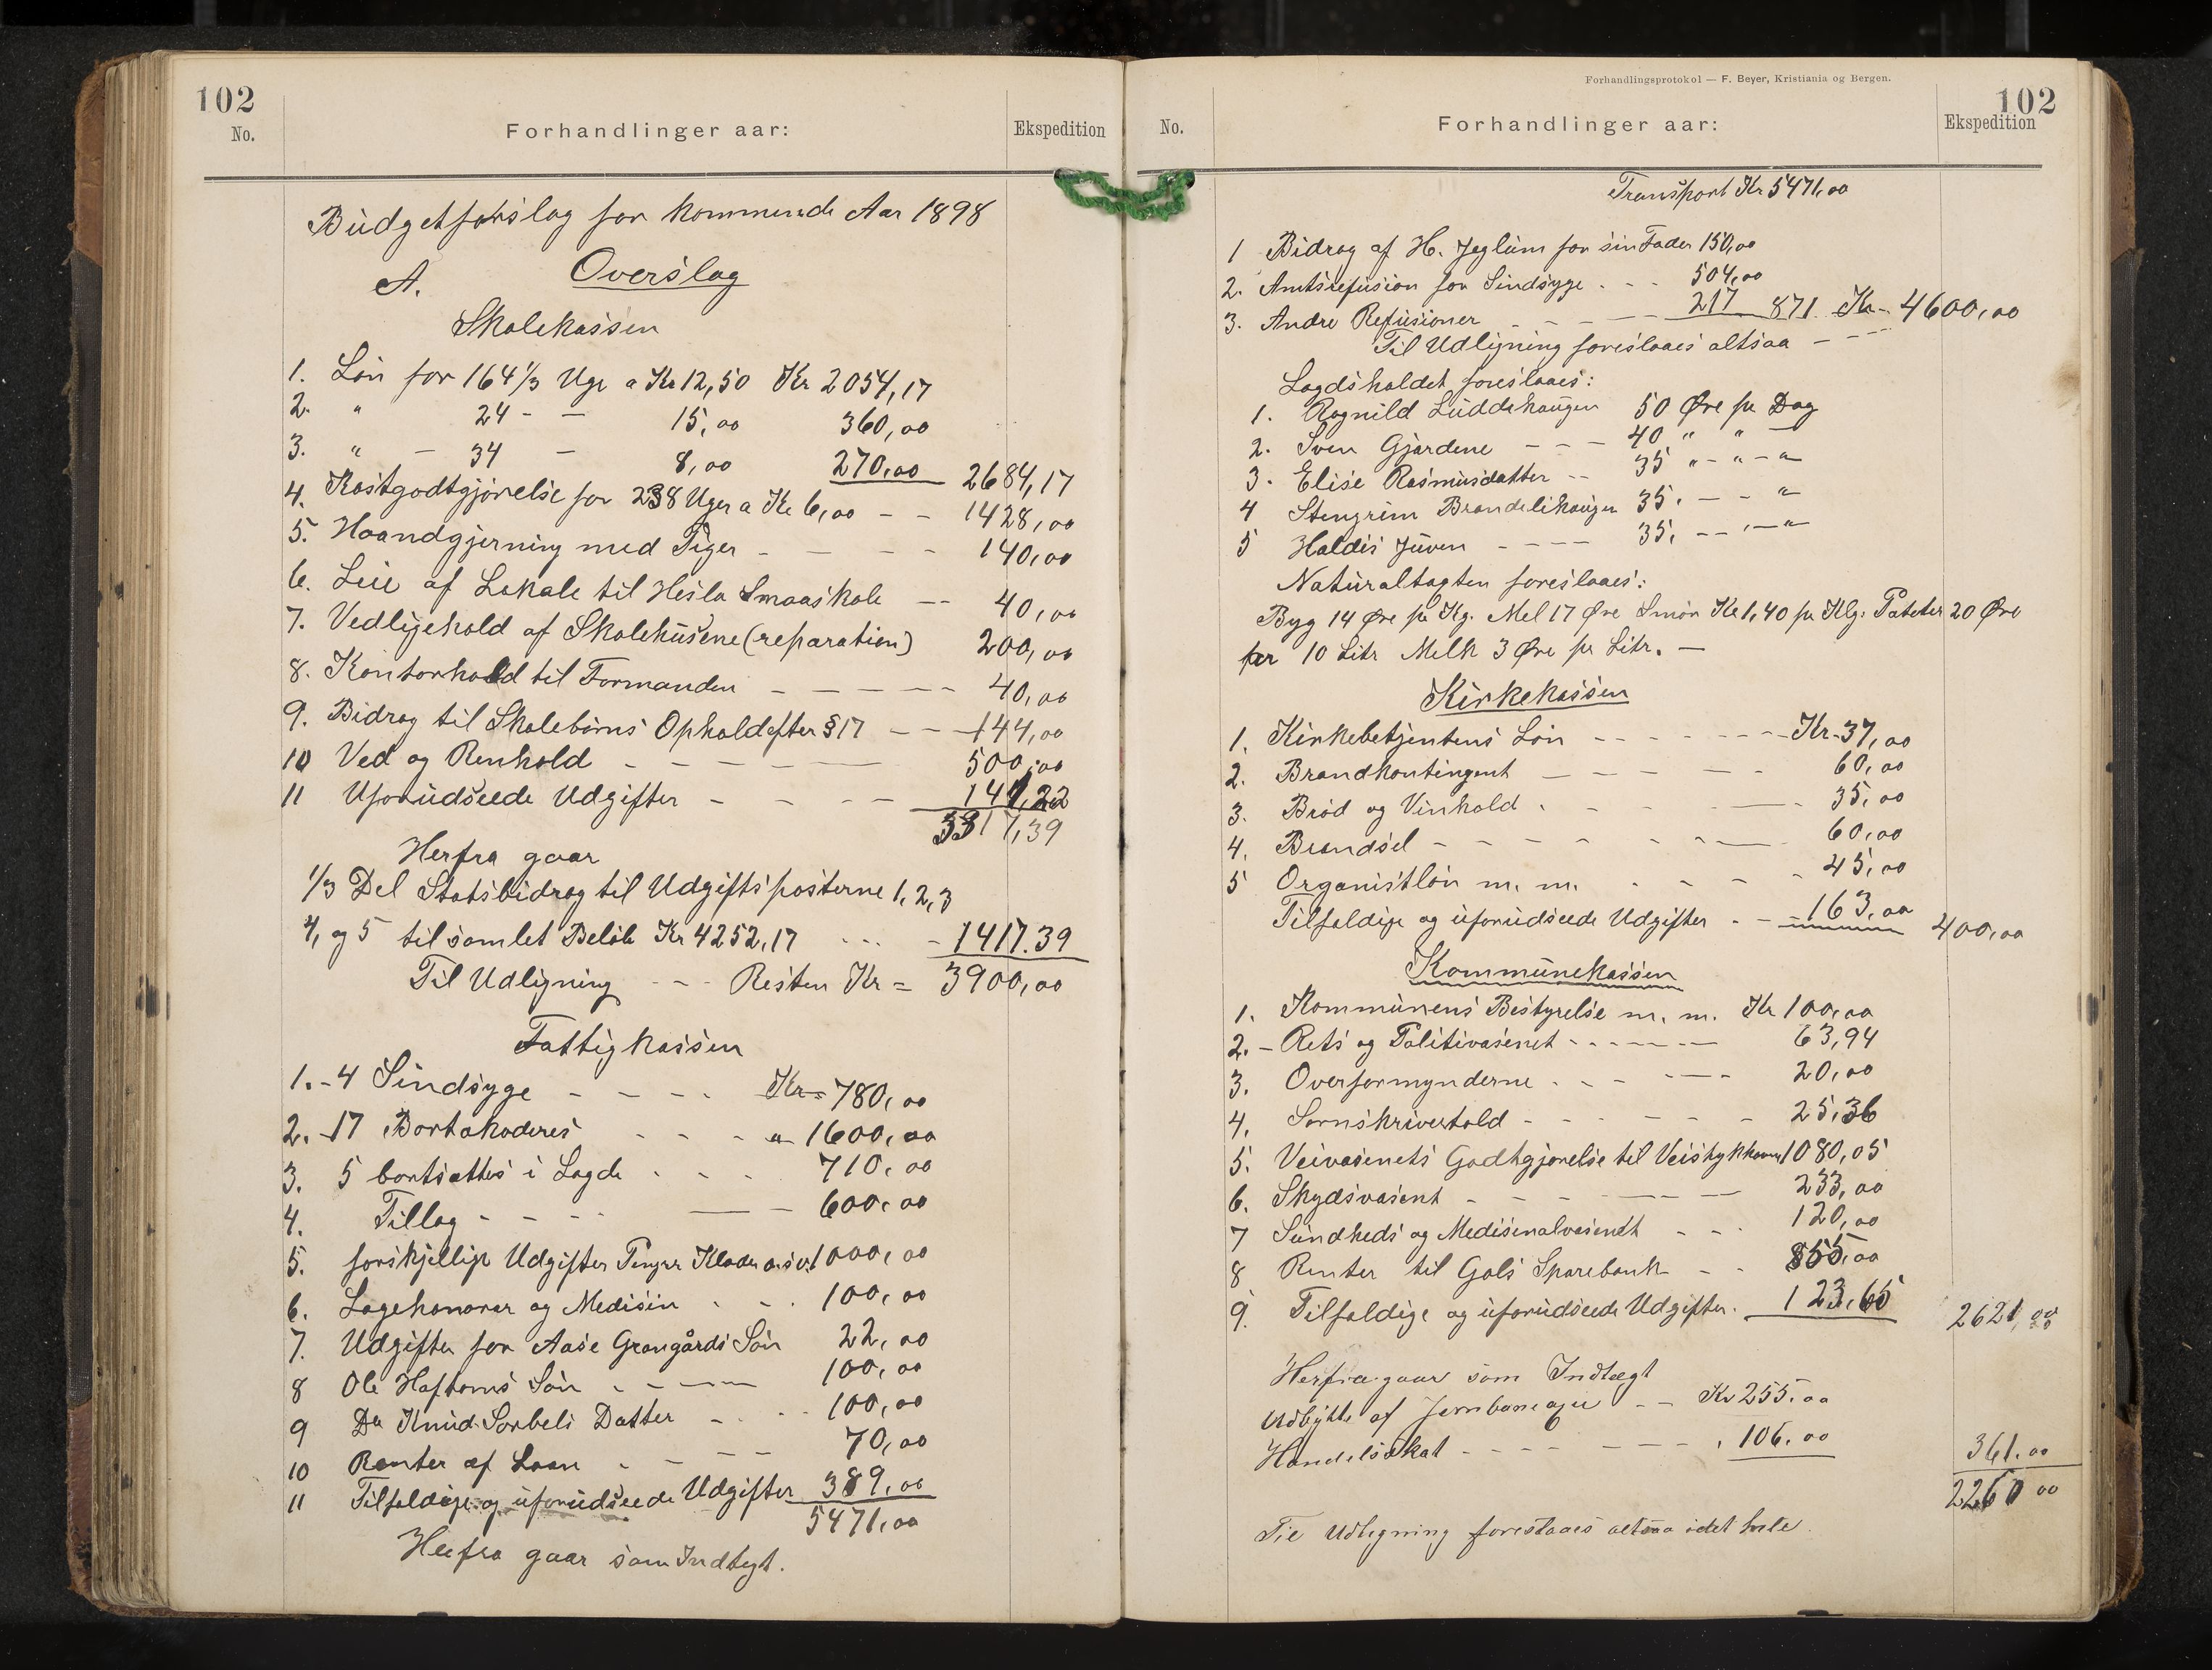 102
No.
Forhandlinger aar:
Ekspedition
Budgetforslag for kommende Aar 1898
A. Overslag
Skolekassen
1. Løn for 164 1/3 Uge a Kr 12,50 Kr 2054,17
2. " 24 - - 15,00 360,00
3. " - 34 - 8,00 270,00 2684,17
4. Kostgodtgjørelse for 238 Uger a Kr 6,00 - - 1428,00
5. Haandgjerning med Piger - - - - 140,00
6. Leie af Lokale til Hesla Smaaskole -- 40,00
7. Vedligehold af Skolehusene (reparation) 200,00
8. Kontorhold til Formanden - - - - - 40,00
9. Bidrag til Skolebørns Ophold efter § 17 - - - 144,00
10 Ved og Renhold - - - - - 500,00
11 Uforudseede Udgifter - - - - 141,22
5317,39
Herfra gaar
1/3 Del Statsbidrag til Udgiftsposterne 1, 2, 3
4, og 5 tilsamlet Beløb Kr 4252,17 ... - 1417.39
Til Udligning - - Resten Kr = 3900,00
Fattigkassen
1. - 4 Sindsyge - - - - Kr = 780,00
2. - 17 Bortakoderes - - - a 1600,00
3. 5 bortsættes i Lægde - - - 710,00
4. Tillæg - - - - 600,00
5. forskjellige Udgifter Penger Klæder o.s.v. 1000,00
6. Lægehonorar og Medisin - - - 100,00
7. Udgifter for Aase Grangårds Søn 22,00
8 Ole Haftorns Søn - - - - 100,00
9 Do Knud Sorbels Datter - - - 100,00
10 Renter af Laan - - - 70,00
11 Tilfældige og uforudseede Udgifter 389,00
5471,00
Herfra gaar som Indtegt.
Forhandlingsprotokol — F. Beyer, Kristiania og Bergen.
102
No.
Forhandlinger aar:
Ekspedition
Transport Kr 5471,00
1 Bidrag af H. Jeglum for sin Fader 150,00
2. Amtsrefusion for Sindsyge - - - 504,00
3. Andre Refusioner - - - - 217 871 Kr - 4600,00
Til Udligning foreslaaes altsaa - - -
Lægdsholdet foreslaaes:
1. Ragnild Luddehaugen 50 Øre pr Dag
2. Sven Gjardene - - - 40 " " -
3. Elise Rasmusdatter - - 35 " - " - "
4 Stengrim Brandelihaugen 35. - - "
5 Haldis Juven - - - - 35, - - , - "
Naturaltagten foreslaaes:
Byg 14 Øre pr Kg. Mel 17 Øre Smør Kr 1,40 pr Klg. Poteter 20 Øre
per 10 Litr Melk 3 Øre pr Litr. -
Kirkekassen
1. Kirkebetjentens Løn - - - - - - Kr - 37,00
2. Brandkontingent - - - - - 60,00
3. Brød og Vinhold - - - - 35,00
4. Brændsel - - - - - - 60,00
5 Organistløn m. m. - - - - 45,00
Tilfældige og uforudseede Udgifter - - 163,00 400,00
Kommunekassen
1. Kommunens Bestyrelse m. m. Kr 100,00
2. - Rets og Politivæsenet - - - - - - 63,94
3. Overformynderne - - - - - 20,00
4. Sornskrivertold - - - - - - 25,36
5. Veivæsenets Godtgjørelse til Veistykkerne 1080,05
6. Skydsvæsent - - - - - - 233,00
7 Sundheds og Medisinalvæsendt - - 120,00
8 Renter til Gols Sparebank - - 855,00
9. Tilfældige og uforudseede Udgifter. 123,65 2621,00
Herfra gaar som Indtægt
Udbytte af Jernbaneager - - Kr 255,00
Handelsskat - - - - - - - . 106,00 361,00
2260 00
Til Udligning foreslaaes altsaa idet hele.